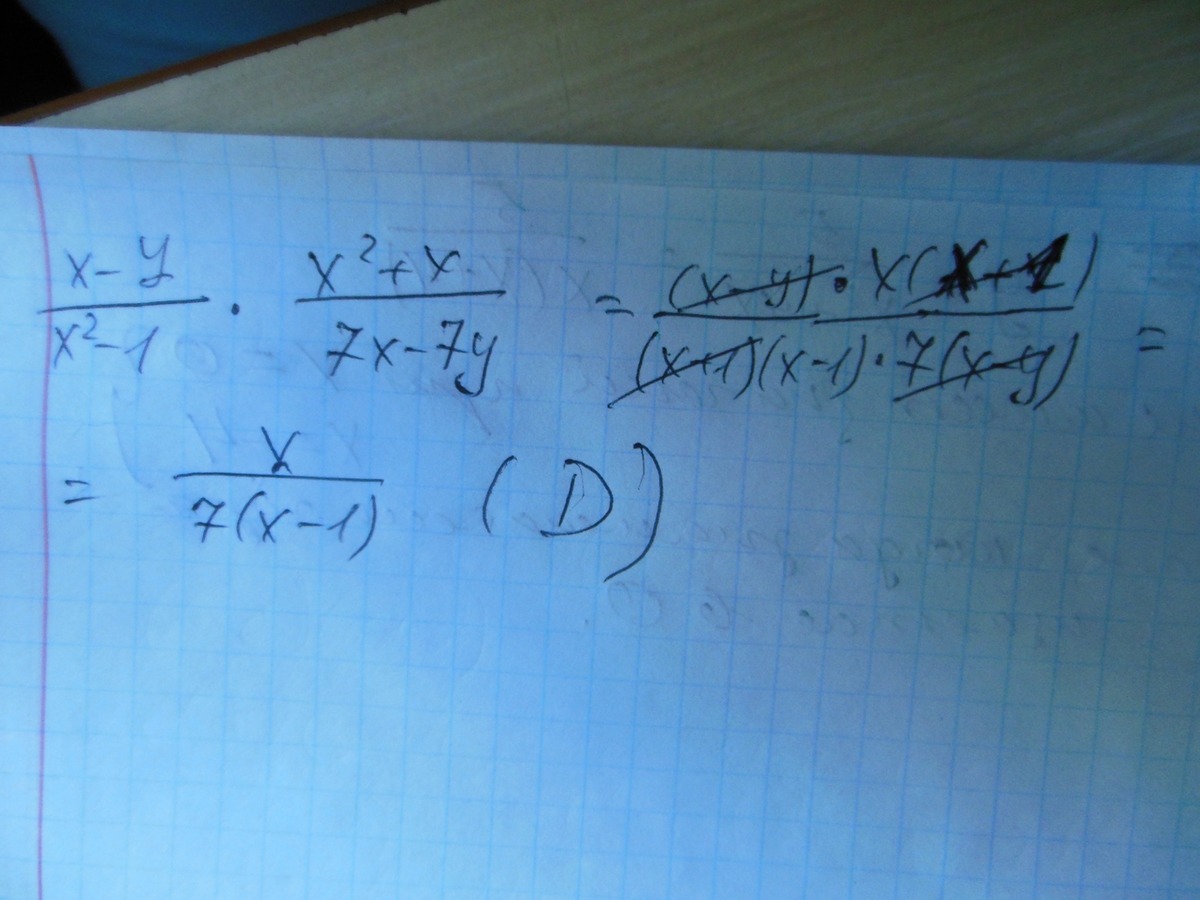 x-y/x²-1 · x²+x/7x-7y = (x-y)·x(x+1)/(x+1)(x-1)·7(x-y) =
= x/7(x-1) (D)